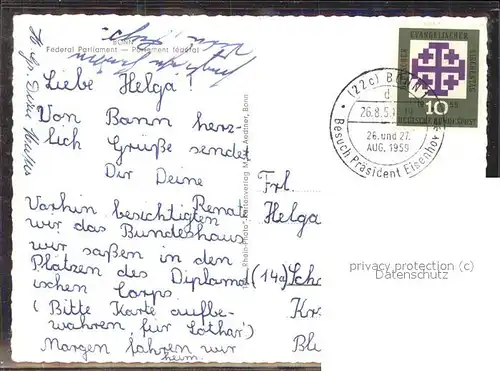 BONN
Federal Parliament — Parlement fédéral
Liebe Helga!
Von Bonn herz-
lich Grüße sendet
Dir Deine
Renate
Vorhin besichtigten
wir das Bundeshaus
wir saßen in den
Plätzen des Diplomat
ischen Corps
( Bitte Karte aufbe-
wahren, für Lothar!)
Morgen fahren wir
heim.
Rhein-Photo-Kartenverlag
Bonn
Frl.
Helga
(14a) Sch
Kr
Bl
EVANGELISCHEN
KIRCHENTAG
10
DEUTSCHE BUNDESPOST
(22c) BONN
d
26.8.5
26. und 27.
AUG. 1959
Besuch Präsident Eisenhow
privacy protection (c)
Datenschutz